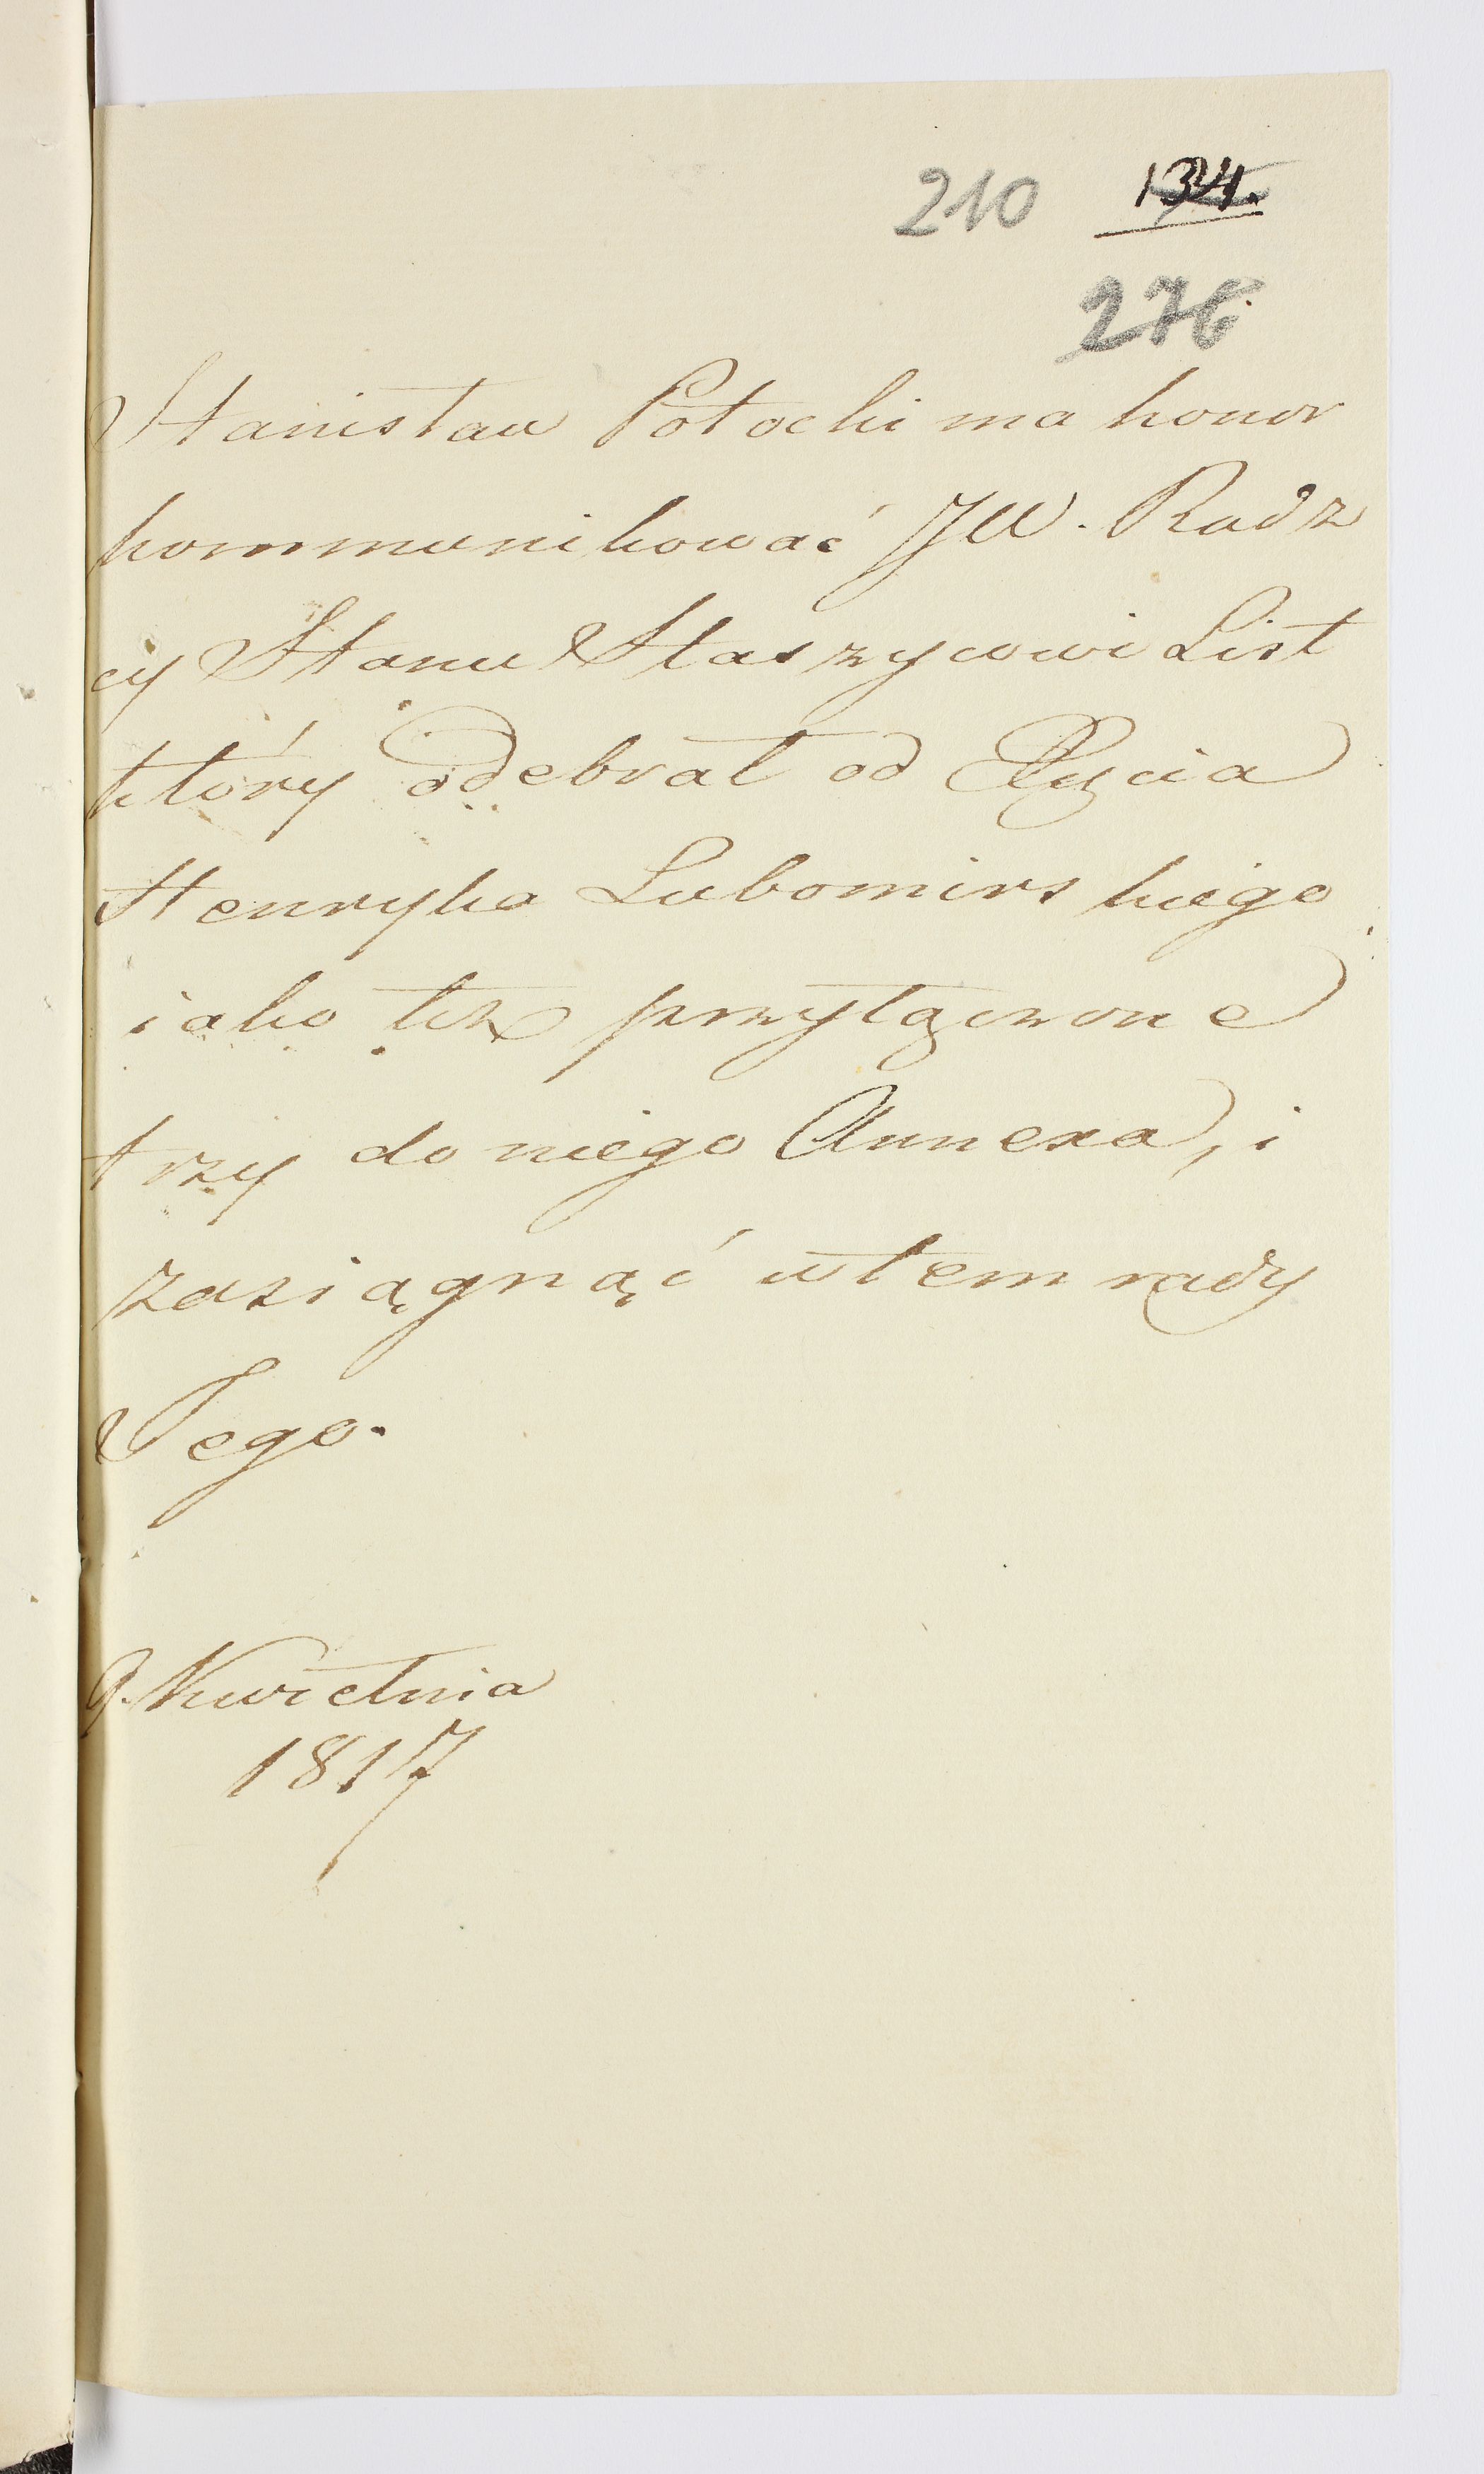 210 134.
276
Stanisław Potocki ma honor
kommunikować JW. Radz
cy Stanu Staszycowi List
który odebrał od Xięcia
Henryka Lubomirskiego
iako też przyłączone
trzy do niego Annexa, i
zasiągnąć w tem rady
Jego.
9. Kwietnia
1817